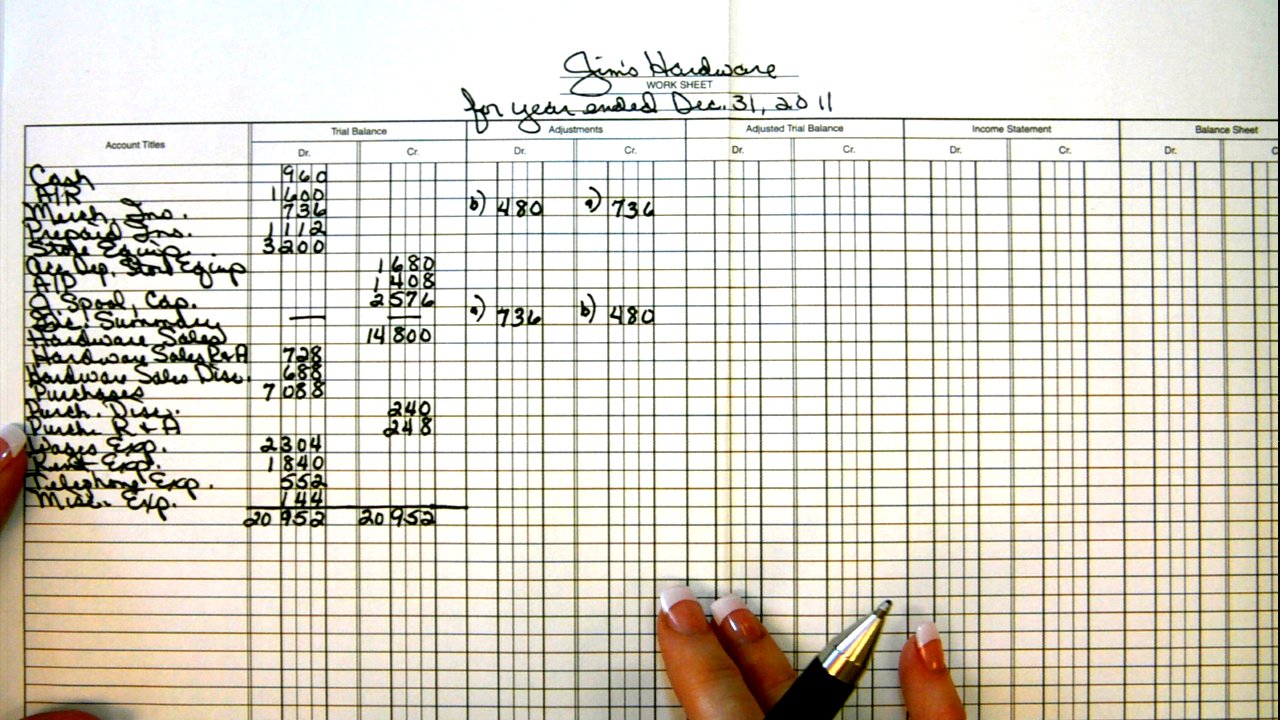 Jim's Hardware
WORK SHEET
for year ended Dec. 31, 2011
Account Titles Trial Balance Adjustments Adjusted Trial Balance Income Statement Balance Sheet
Dr. Cr. Dr. Cr. Dr. Cr. Dr. Cr. Dr. C
Cash 960
A/R 1600
Merch. Inv. 736 b) 480 a) 736
Prepaid Ins. 1112
Store Equip. 3200
Acc. Dep. Store Equip 1680
A/P 1408
J. Spool, Cap. 2576
Inc. Summary — — a) 736 b) 480
Hardware Sales 14800
Hardware Sales R+A 728
Hardware Sales Disc. 688
Purchases 7088
Purch. Disc. 240
Purch. R+A 248
Wages Exp. 2304
Rent Exp. 1840
Telephone Exp. 552
Misc. Exp. 144
20952 20952